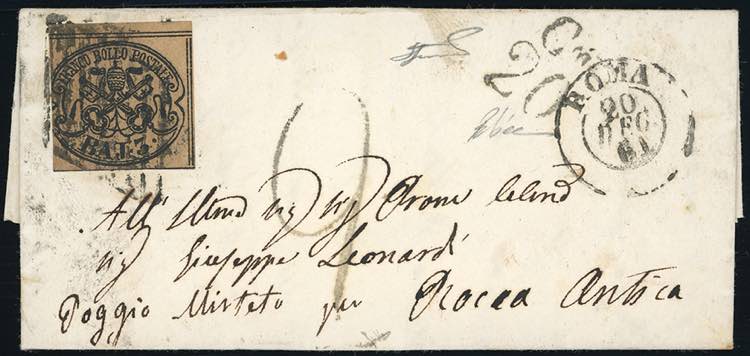 FRANCO BOLLO POSTALE
BAJ. 3
ROMA
20
DEC
61
9
All' Illmo Sig Sig Prone Colmo
Sig Giuseppe Leonardi
Poggio Mirteto per Rocca Antica